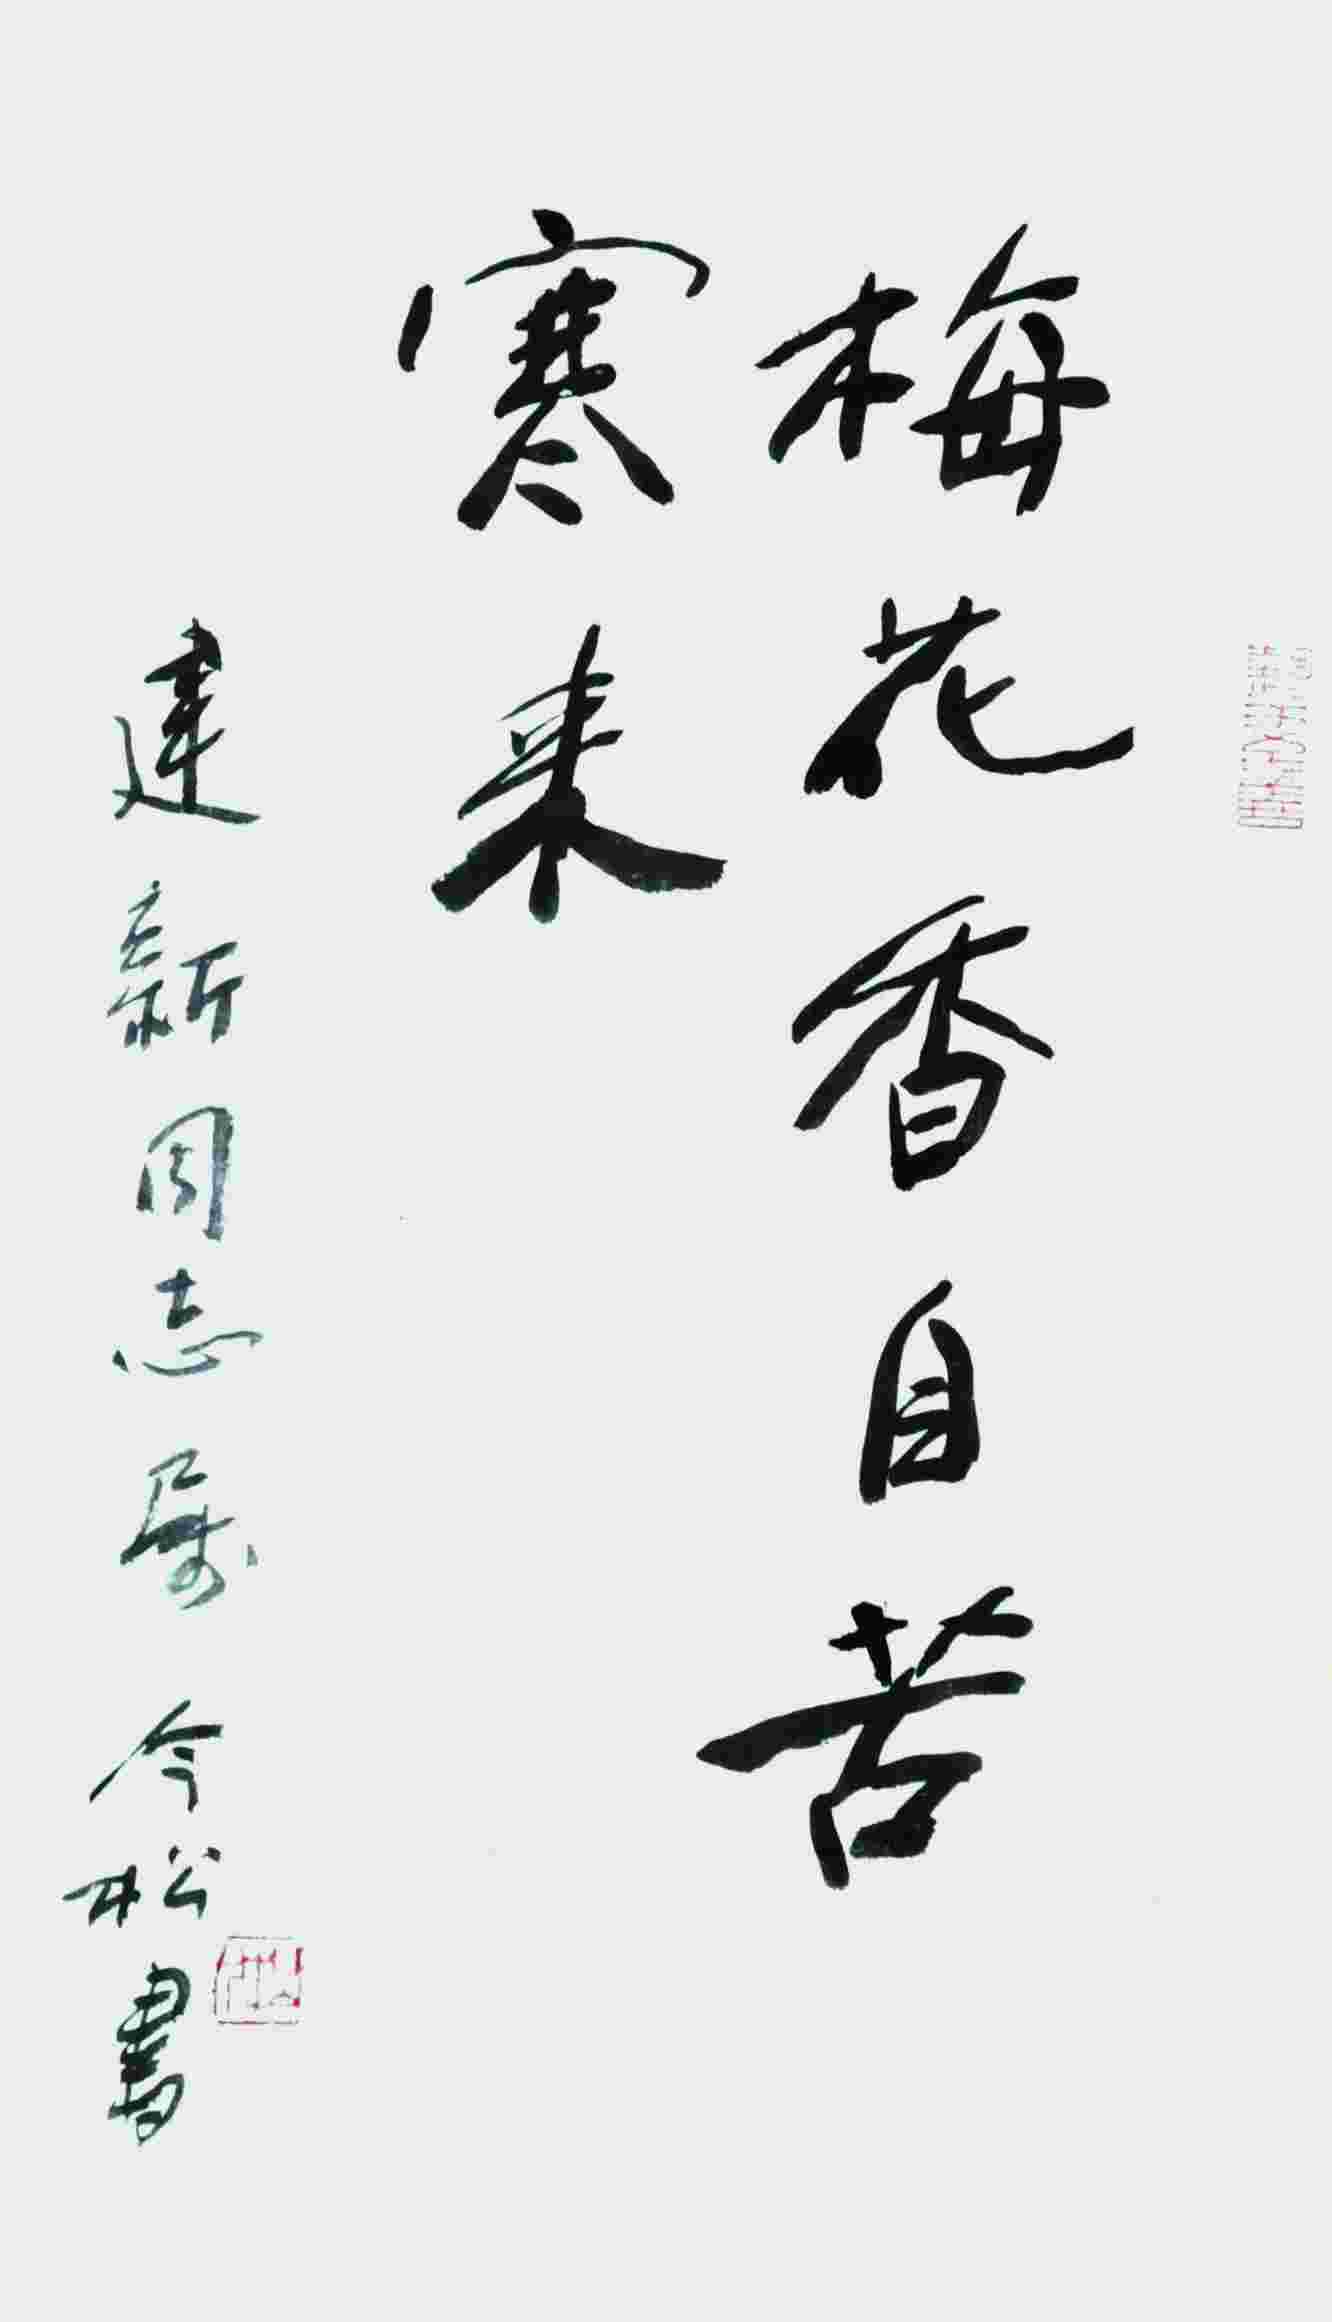 梅花香自苦
寒来
建新同志属 今松書